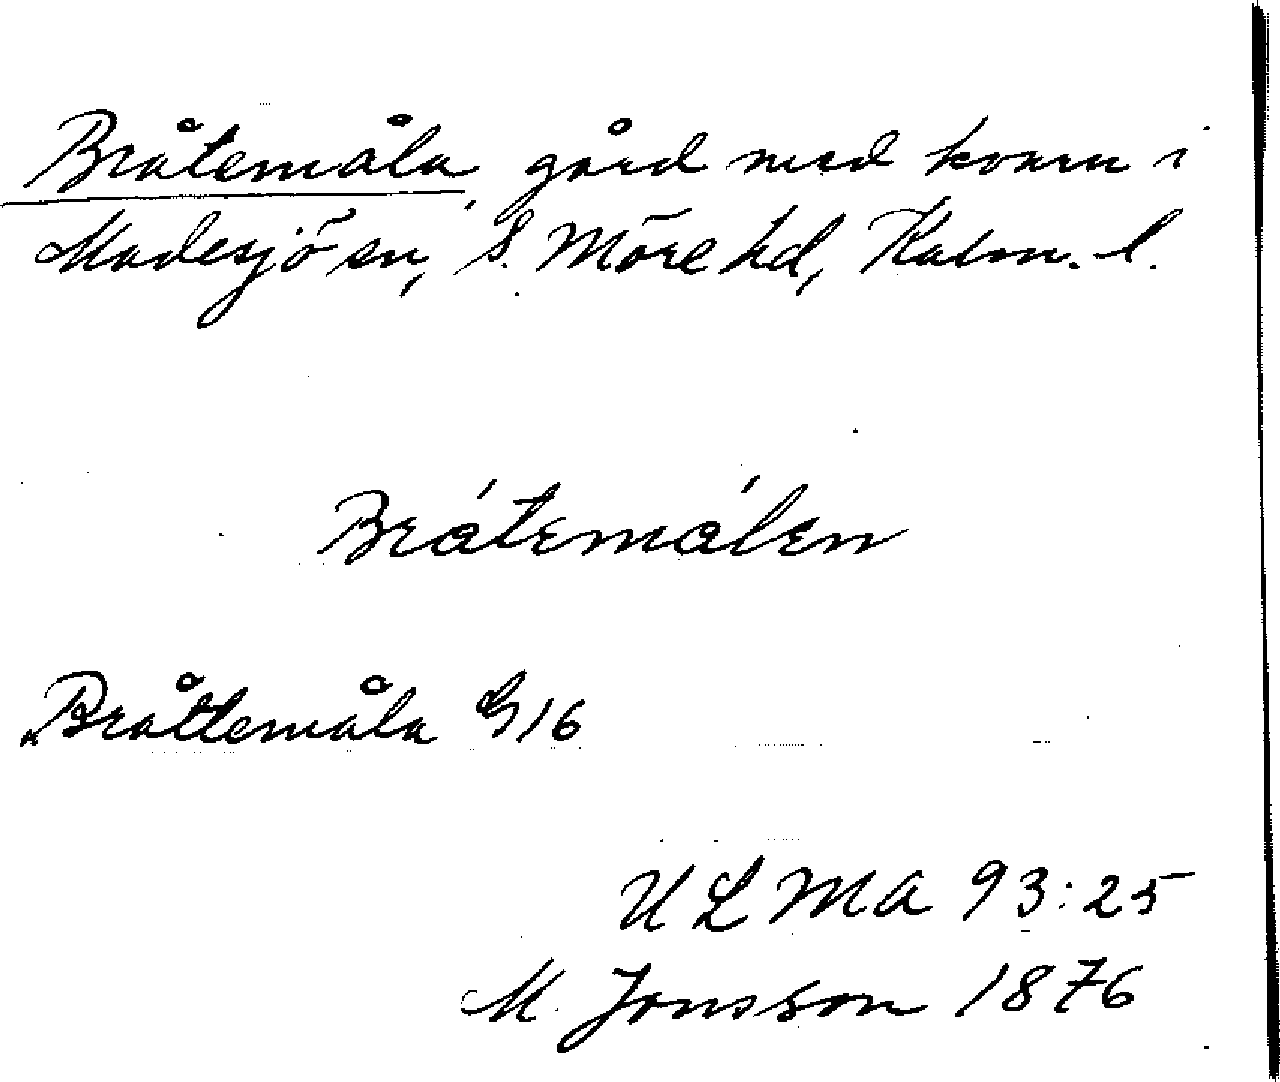 Bråtemåla, gård med kvarn i
Madesjö sn, S. Möre hd, Kalm. l.
Brátemálen
Bråttemåla G 16
ULMA 93:25
M. Jonsson 1876